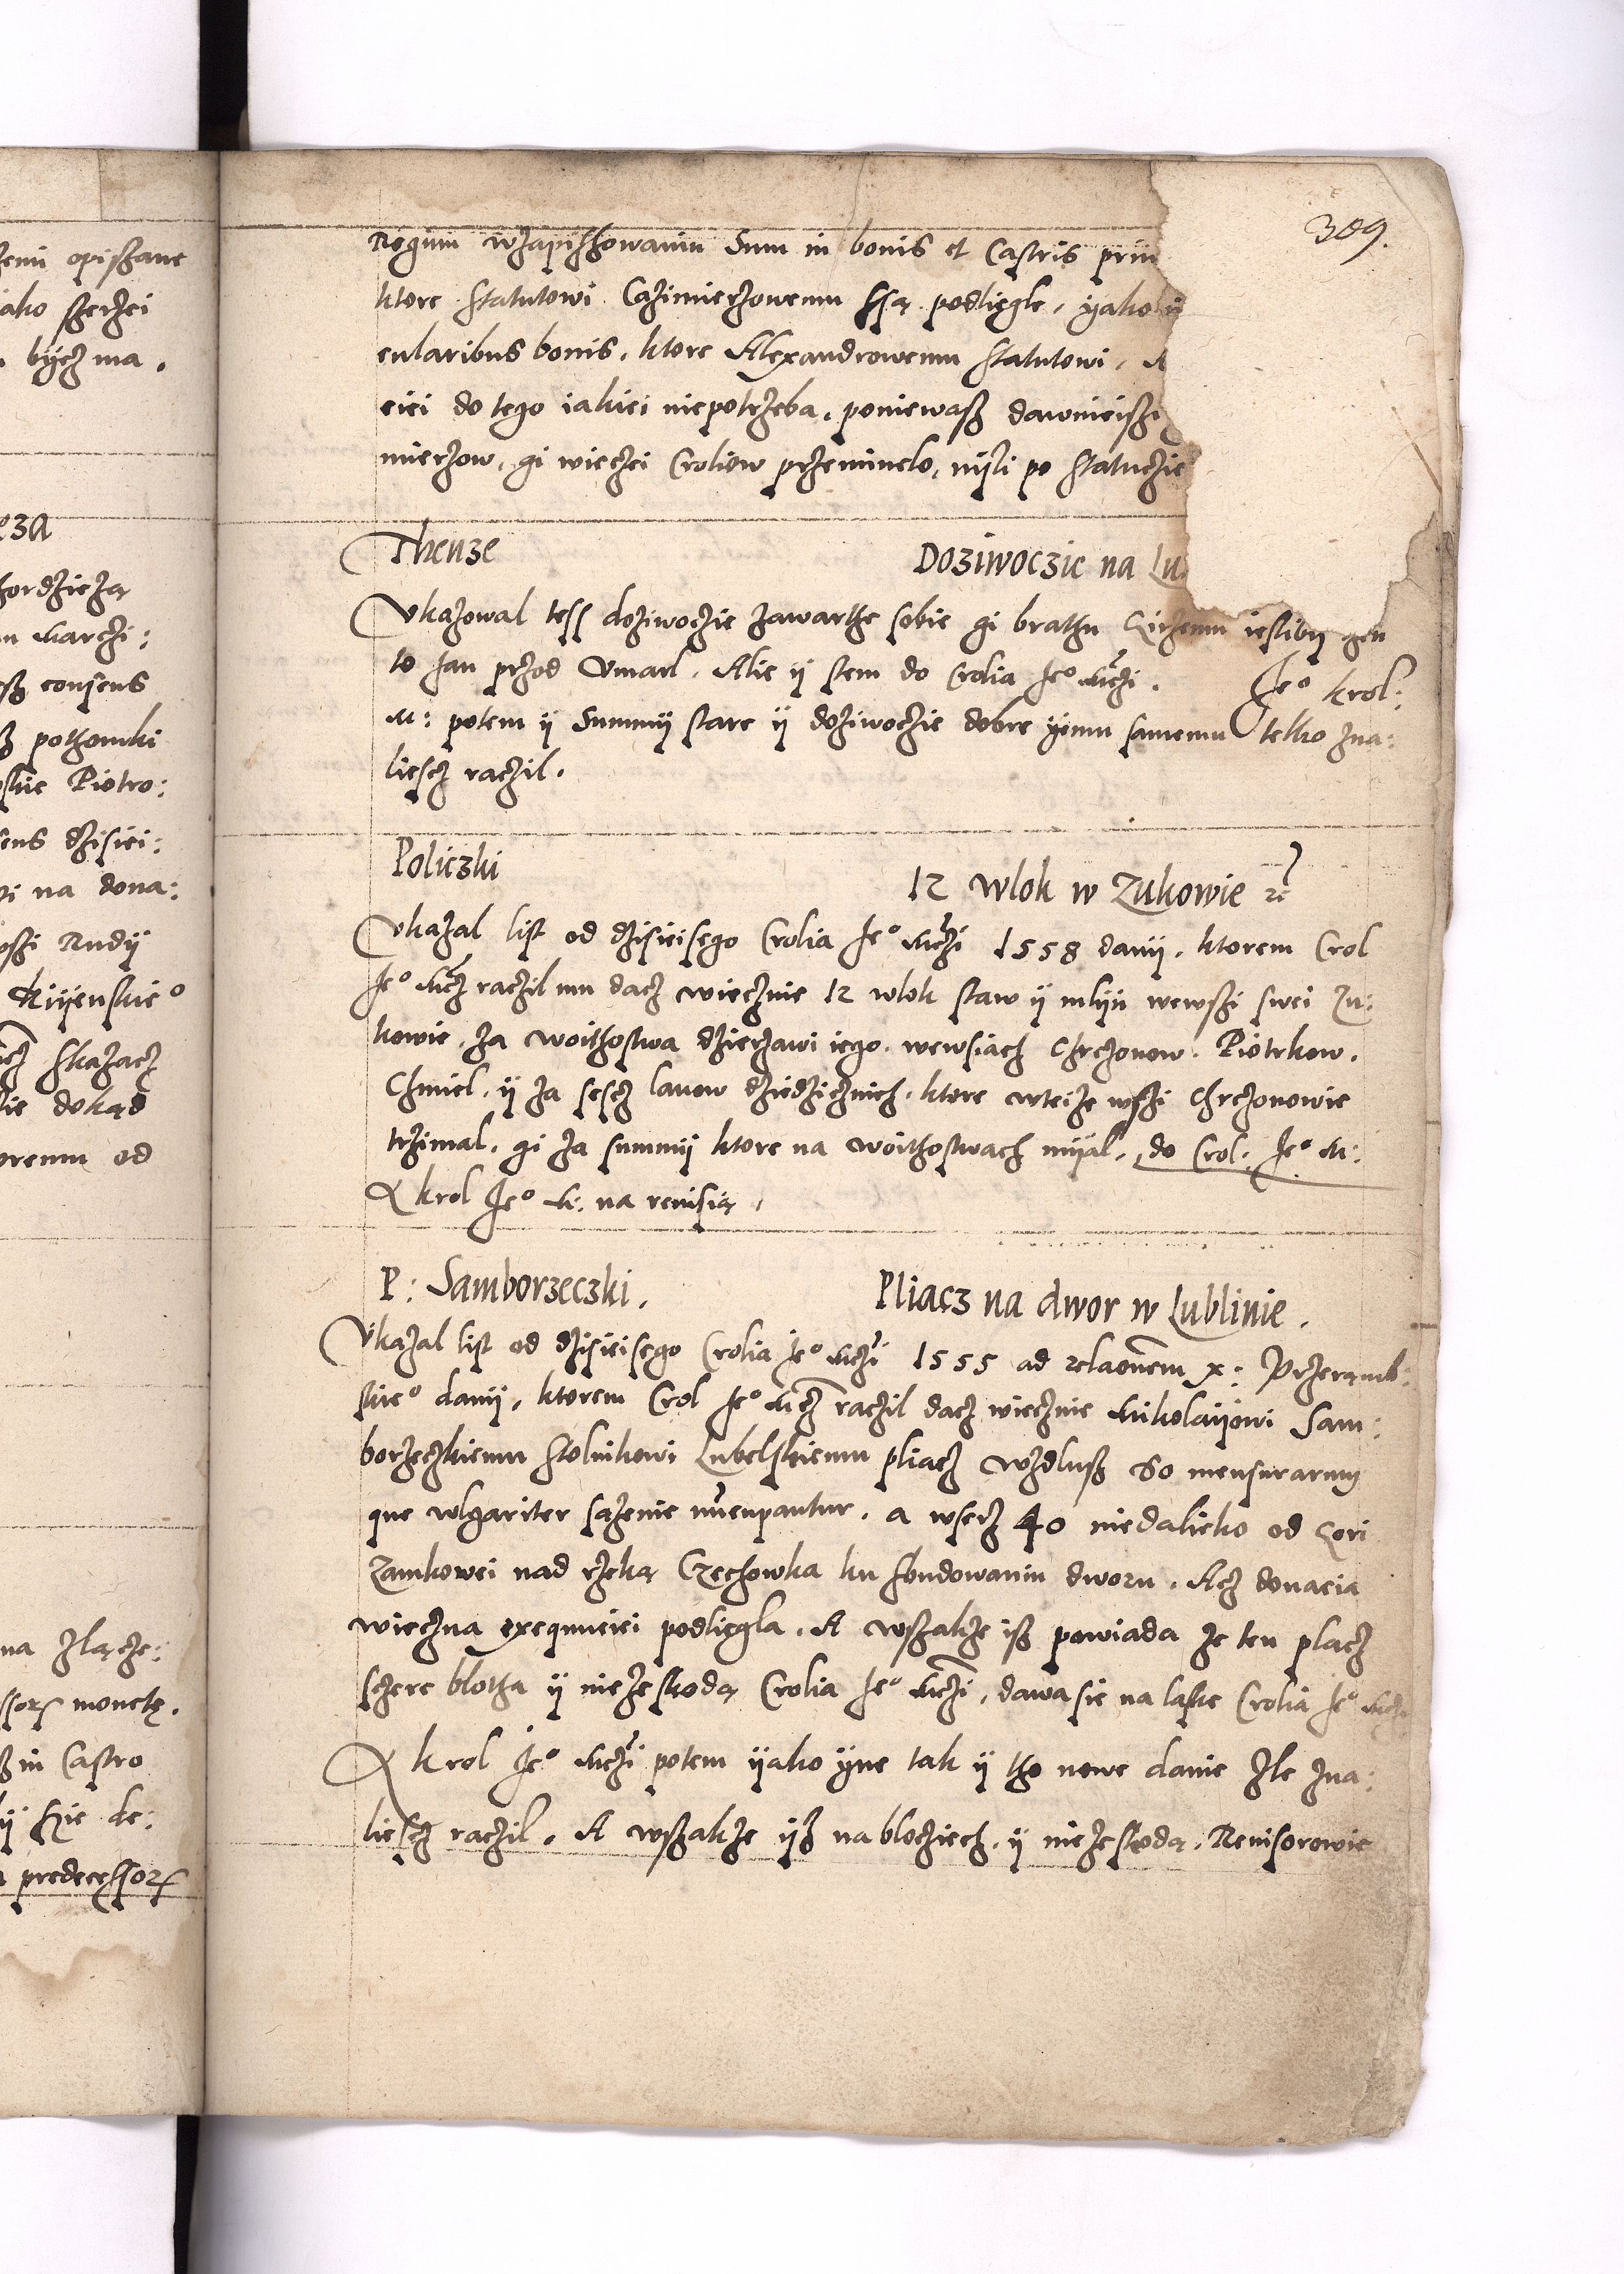 309.
Regum wzapisſzowaniu Sum in bonis et Castris prin
ktore Statutowi Cazimierzowemu ſsą podliegle, yako
cularibus bonis, ktore Alexandrowemu Statutowi, A
ciei do tego iakiei niepotrzeba, poniewaß dawnieißi
mierzow, gi wieczei Croliow przeminelo, nizli po Statucie
Thenze Doziwoczie na Lu
Ukazowal teß doziwoczie zawarthe sobie gi brathu iesliby gen
to Jan przod Umarl. Alie ÿ stem do Crolia Je° Mczi. Je° krol:
M: potem ÿ Summÿ stare ÿ doziwoczie dobre ÿemu samemu telko zna:
liescz raczil.
Policzki 12 wlok w Zukowie
Ukazal list od dzisieisego Crolia Je° Mczi 1558 danÿ, ktorem Crol
Je° Mcz raczil mu dacz wiecznie 12 wlok staw ÿ mlÿn wewsi swei Zu:
kowie, za woithostwa dzierzawi iego, wewsiach Chrczonow, Piotrkow,
Chmiel, ÿ za sescz lanow dziedzicznich, ktore wteize wsi Chrczonowie
trzimal, gi za summÿ ktore na woithostwach mÿal, do Crol: Je° M:
A krol Je° M: na reuisią,
P: Samborzeczki. Pliacz na dwor w Lublinie.
Ukazal list od dzisieisego Crolia Je° Mczi 1555 ad relaonem x: Przeremb:
skie° danÿ, ktorem Crol Je° Mcz raczil dacz wiecznie Mikolaÿowi Sam:
borzeczkiemu Stolnikowi Lubelskiemu pliacz wzdluß 80 mensurarum
que wlgariter sązenie nuncupantur, a wserz 40 niedalieko od Gori
Zamkowei nad rzeką Czechowka ku fbudowaniu dworu. Acz donacia
wieczna exequuciei podliegla. A wßakze iß powiada ze ten placz
sczere blotha ÿ niezeskodą Crolia Je° Mczi, dawa sie na laske Crolia Je° Mczi
A krol Je° Mczi potem ÿako ÿne tak ÿ tho nowe danie Zle zna:
liescz raczil. A wßakze ÿz na blocziech, ÿ niezeskodą, Reuisorowie